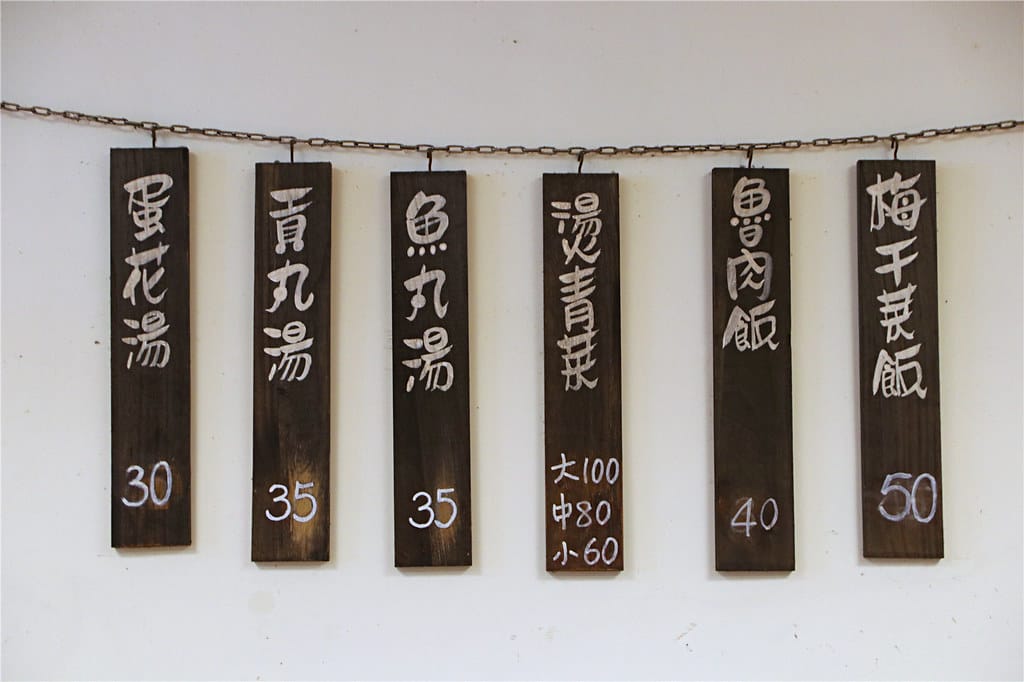 梅干菜飯
50
魯肉飯
40
燙青菜
大100
中80
小60
魚丸湯
35
貢丸湯
35
蛋花湯
30